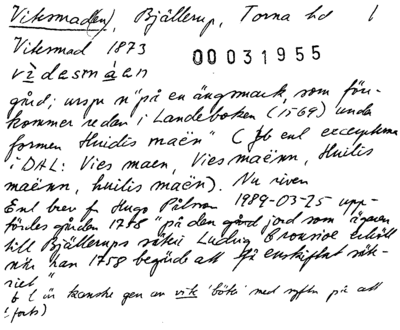 Viksmad(en), Bjällerup, Torna hd 1
Viksmad 1873
00031955
vìdesmáen
gård; urspr n "på en ängmark, som före-
kommer redan i Landeboken (1569) under
formen Huidis maën" (jb enl excerpterna
i DAL: Vies maen, Vies maënn, Huitis
maënn, huilis maën). Nu riven
Enl brev fr Hugo Pålsson 1989-03-25 upp-
fördes gården 1778 "på den jord som ägaren
till Bjällerups säteri Ludvig erhöll
när han 1758 begärde att få enskiftat säte-
riet"
f l är kanske gen av vik 'böka' med syftn på att
(forts)